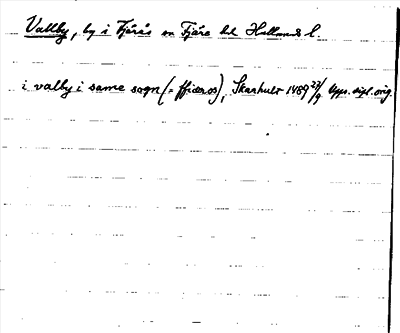 Vallby, by i Fjärås sn Fjäre hd Hallands l.
i valby i same sogn (= ffiæros), Skarhult 1489 22/9 Upps. dipl. orig